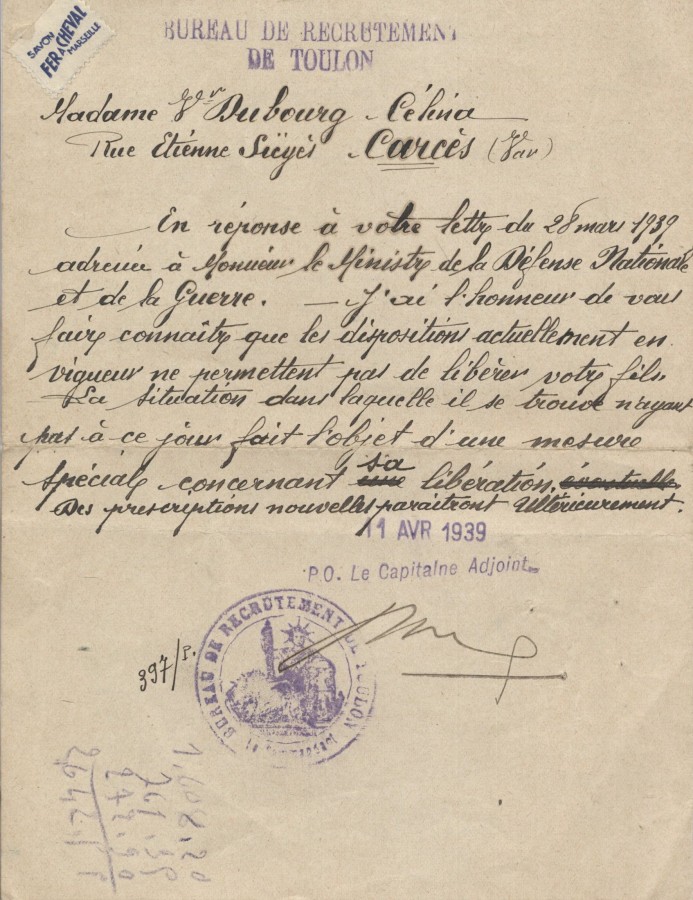 SAVON
FER À CHEVAL
MARSEILLE
BUREAU DE RECRUTEMENT
DE TOULON
Madame Vve Dubourg Célina
Rue Etienne Siëyès Carcès (Var)
En réponse à votre lettre du 28 mars 1939
adressée à Monsieur le Ministre de la Défense Nationale
et de la Guerre. — J'ai l'honneur de vous
faire connaître que les dispositions actuellement en
vigueur ne permettent pas de libérer votre fils.
La situation dans laquelle il se trouve n'ayant
pas à ce jour fait l'objet d'une mesure
spéciale concernant une sa libération, éventuelle.
Des prescriptions nouvelles paraîtront ultérieurement.
11 AVR 1939
P.O. Le Capitaine Adjoint
397/P.
BUREAU DE RECRUTEMENT DE TOULON
Le Commandant
1.608,20